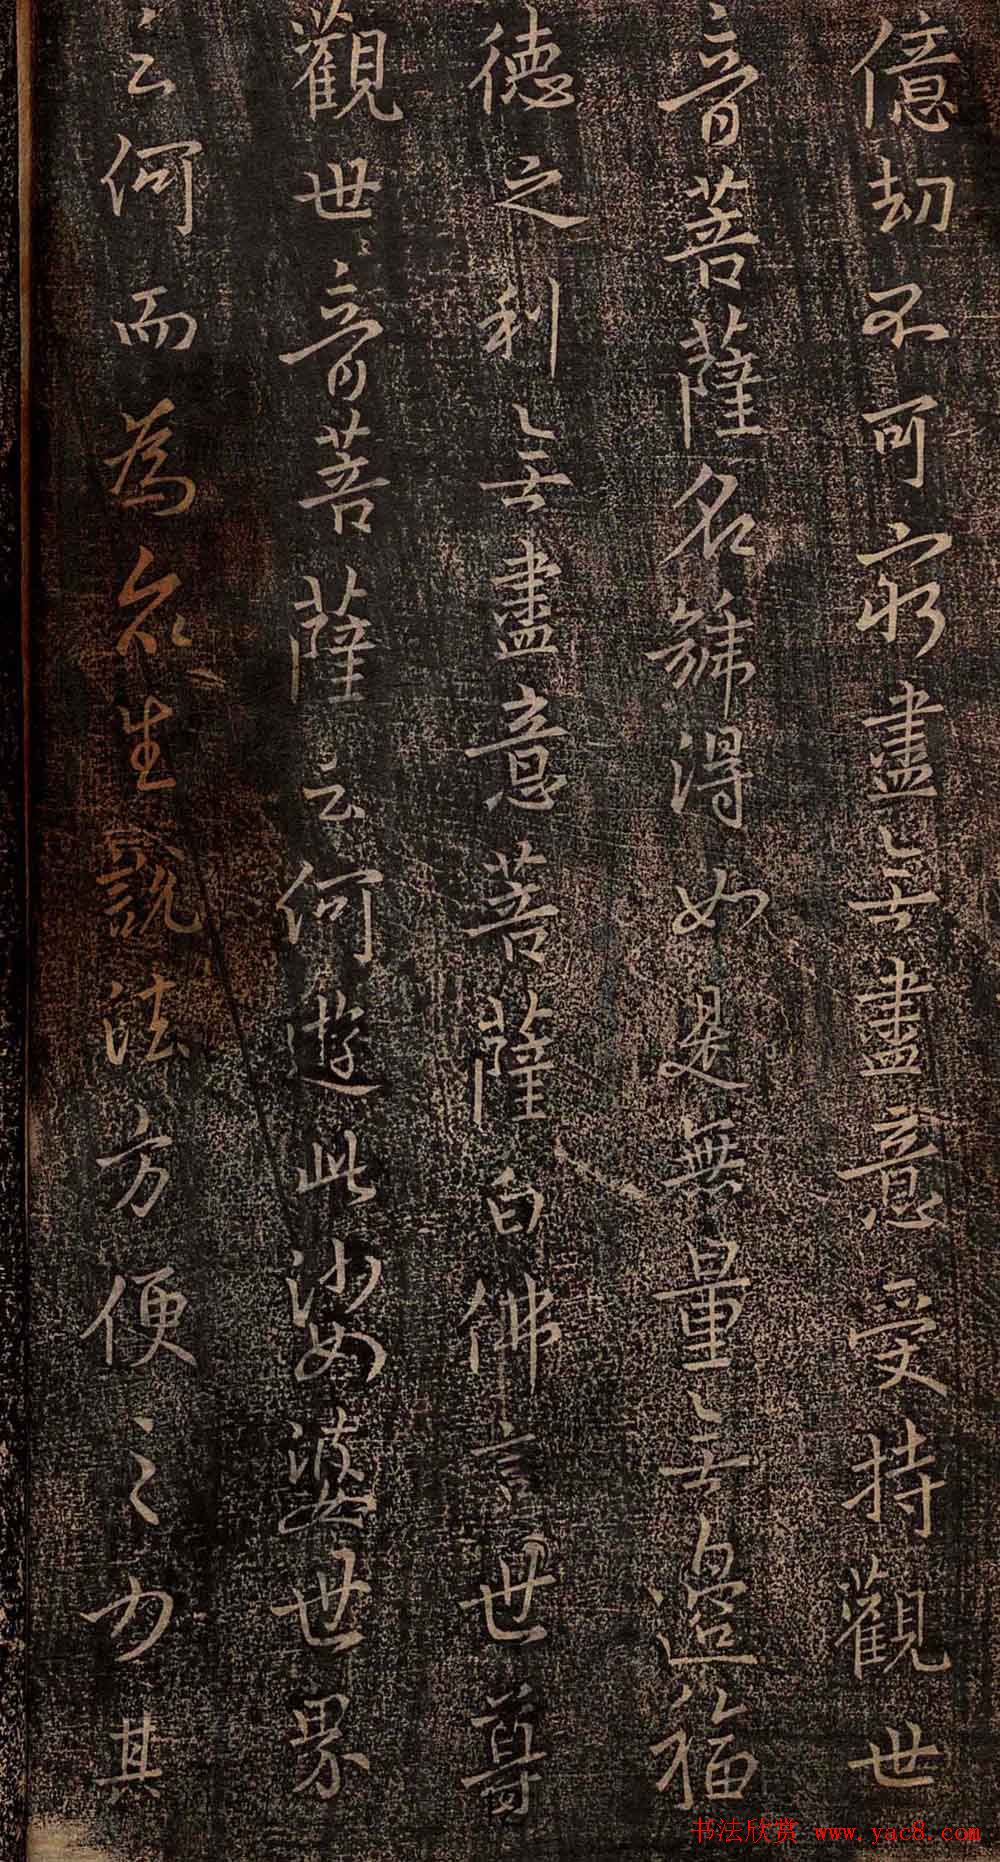 億劫不可窮盡無盡意受持觀世
音菩薩名號得如是無量無邊福
德之利無盡意菩薩白佛言世尊
觀世音菩薩云何遊此娑婆世界
云何而為眾生說法方便之力其
书法欣赏 www.yac8.com